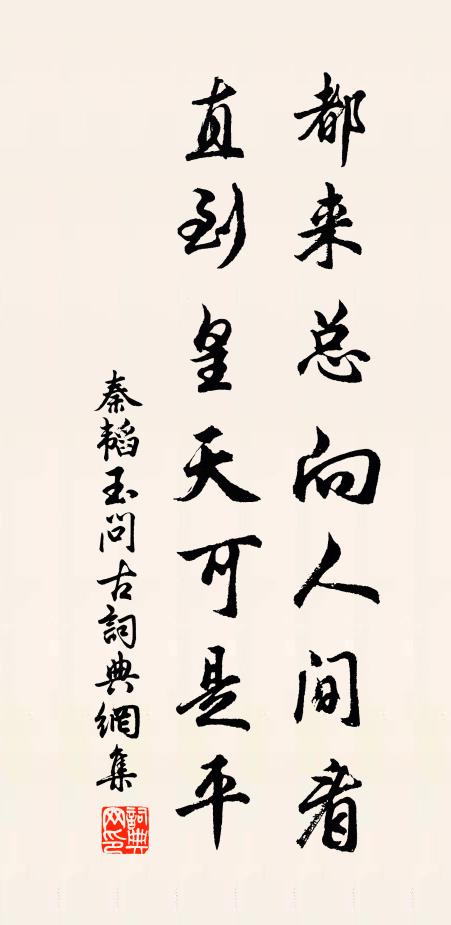 都来总向人间看
直到皇天可是平
秦韬玉问古詞典網集
詞典网印